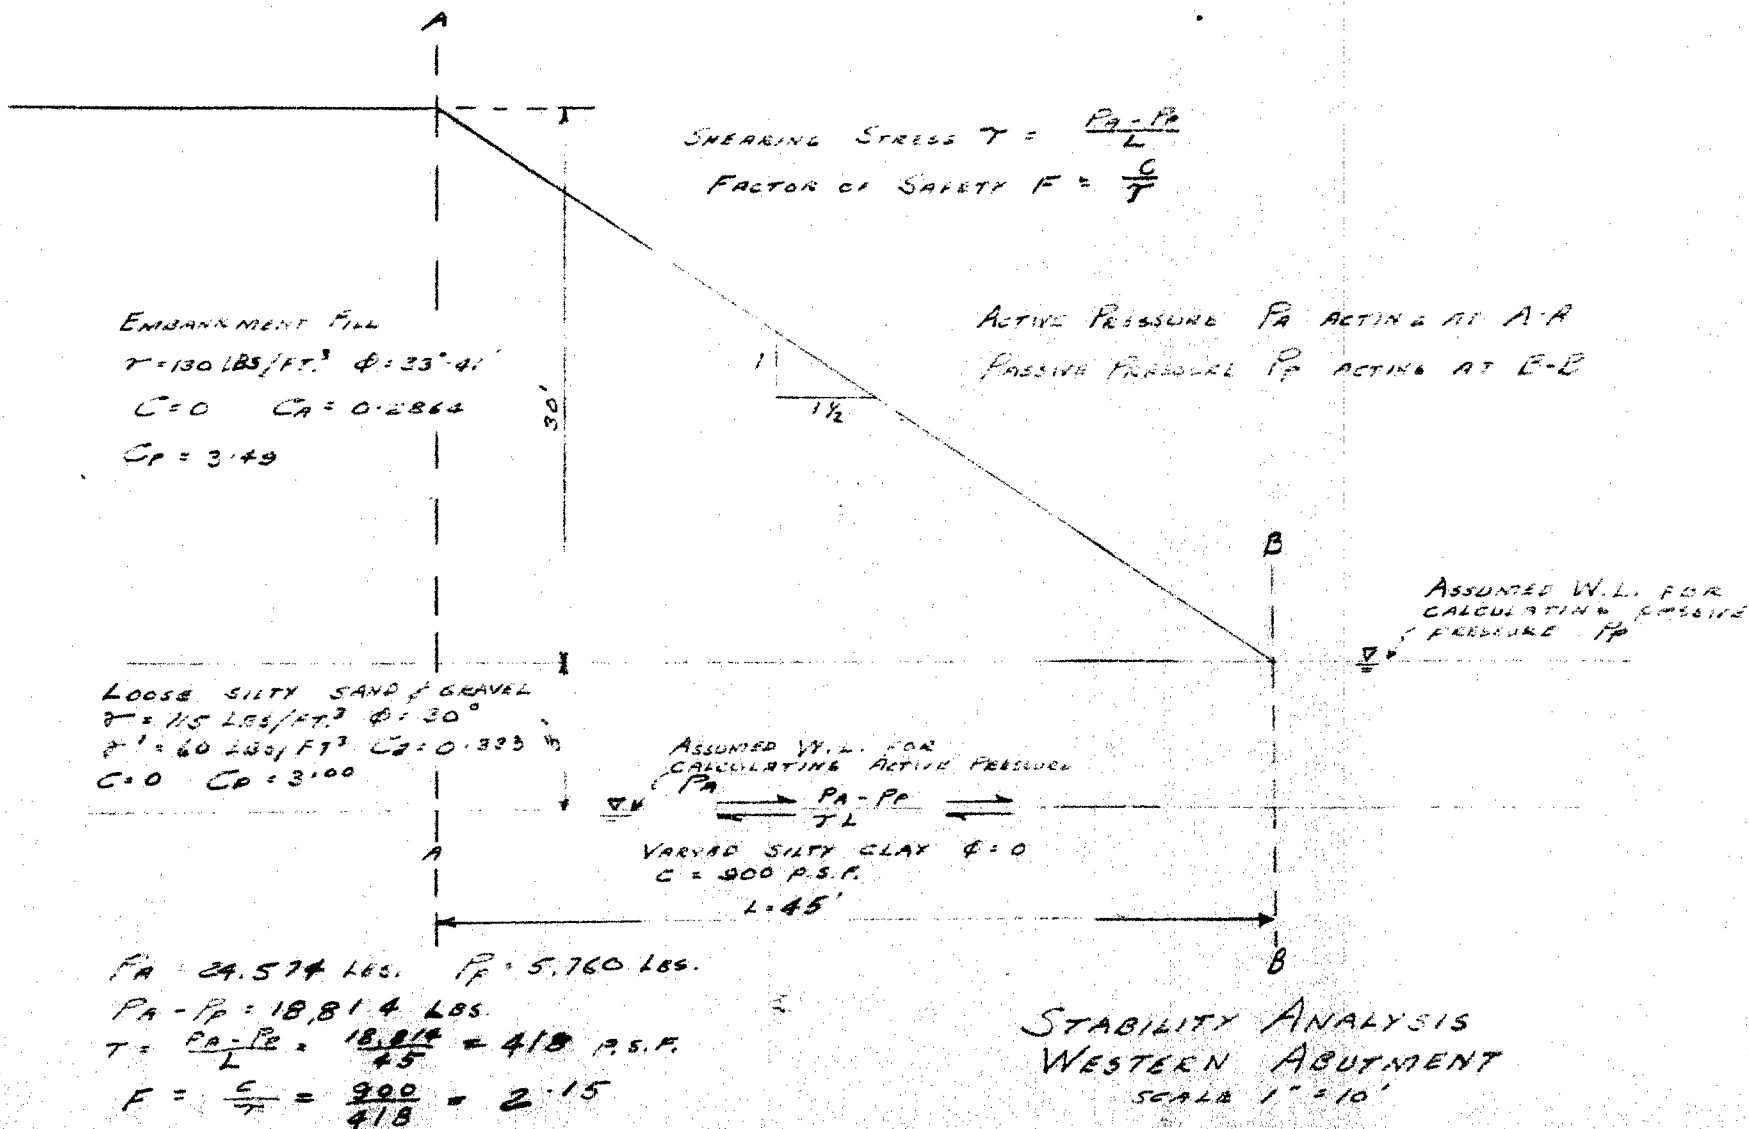 A
SHEARING STRESS τ = PA - PP / L
FACTOR OF SAFETY F = C / τ
EMBANKMENT FILL
γ = 130 LBS/FT.³ φ = 33°-41'
C = 0 CA = 0.2864
CP = 3.49
30'
1
1½
ACTIVE PRESSURE PA ACTING AT A-A
PASSIVE PRESSURE PP ACTING AT B-B
B
ASSUMED W.L. FOR
CALCULATING PASSIVE
PRESSURE PP
LOOSE SILTY SAND & GRAVEL
γ = 115 LBS/FT.³ φ = 30°
γ' = 60 LBS/FT³ CA = 0.333
C = 0 CP = 3.00
ASSUMED W.L. FOR
CALCULATING ACTIVE PRESSURE
PA
PA - PP
τL
A
VARVED SILTY CLAY φ = 0
C = 900 P.S.F.
L = 45'
B
PA = 24,574 LBS. PP = 5,760 LBS.
PA - PP = 18,814 LBS.
τ = PA - PP / L = 18,814 / 45 = 418 P.S.F.
F = C / τ = 900 / 418 = 2.15
STABILITY ANALYSIS
WESTERN ABUTMENT
SCALE 1" = 10'